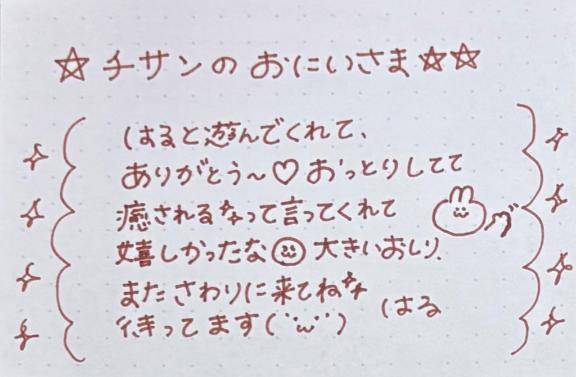 ☆チサンの おにいさま☆☆
はると遊んでくれて、
ありがとう〜♡おっとりしてて
癒されるなって言ってくれて
嬉しかったな☺大きいおしり、
また さわりに来てね
待ってます(¨ω¨)
はる